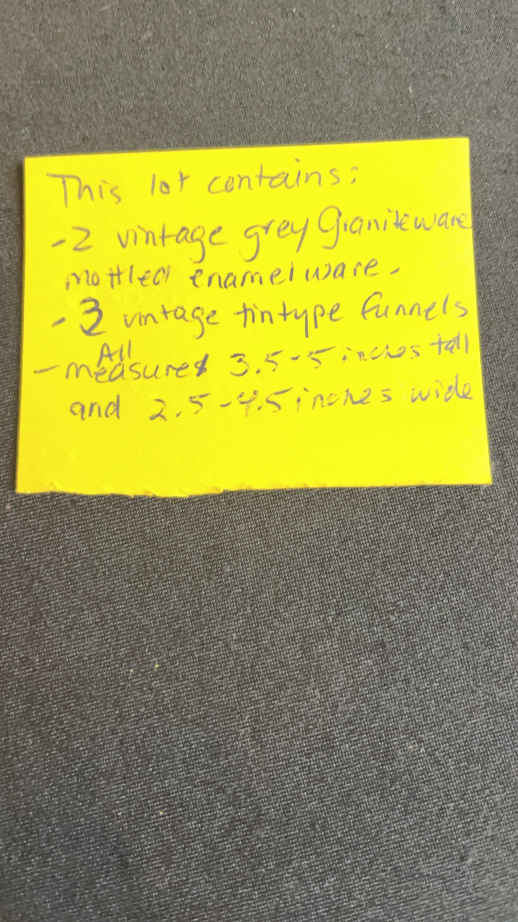 This lot contains:
-2 vintage grey Graniteware
mottled enamelware.
-3 vintage tintype funnels
- All measures 3.5-5 inches tall
and 2.5-4.5 inches wide